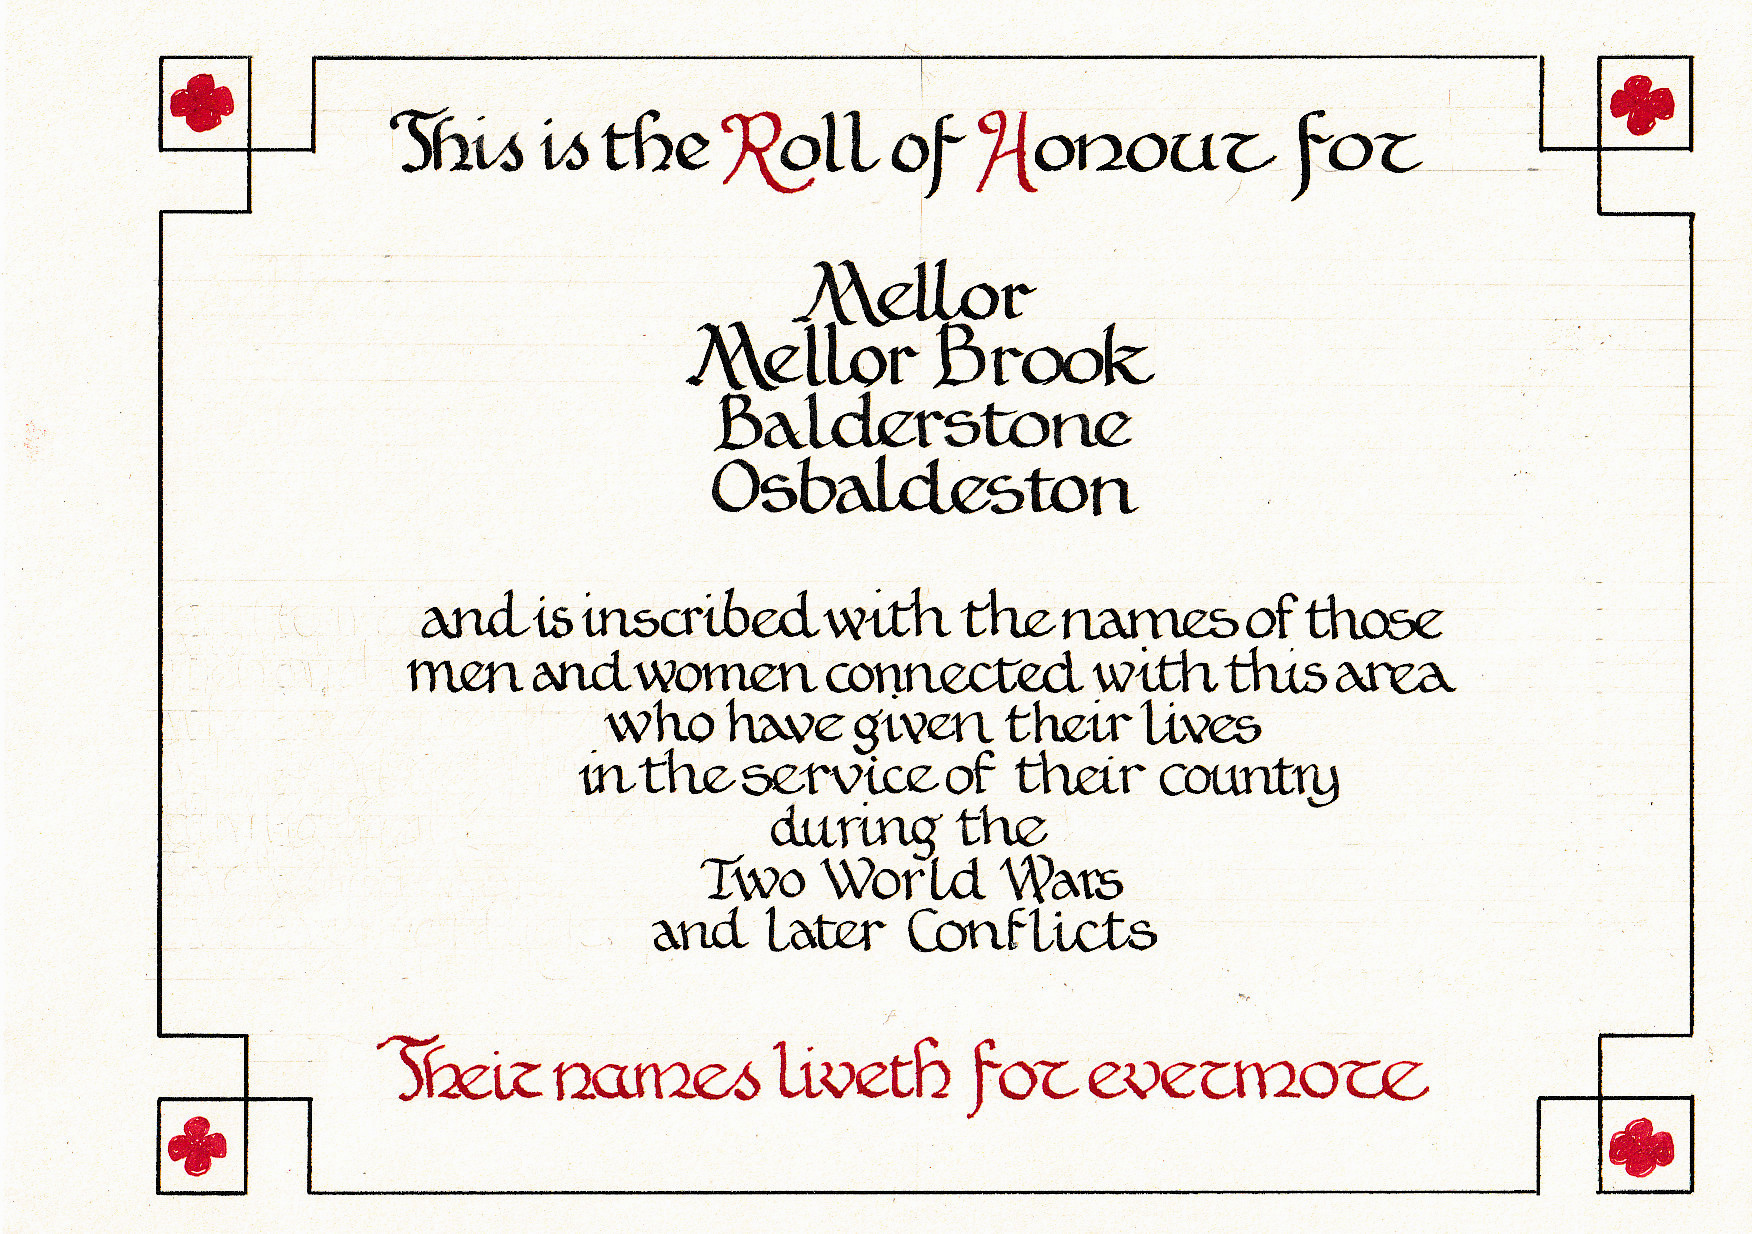 This is the Roll of Honour for
Mellor
Mellor Brook
Balderstone
Osbaldeston
and is inscribed with the names of those
men and women connected with this area
who have given their lives
in the service of their country
during the
Two World Wars
and later Conflicts
Their names liveth for evermore